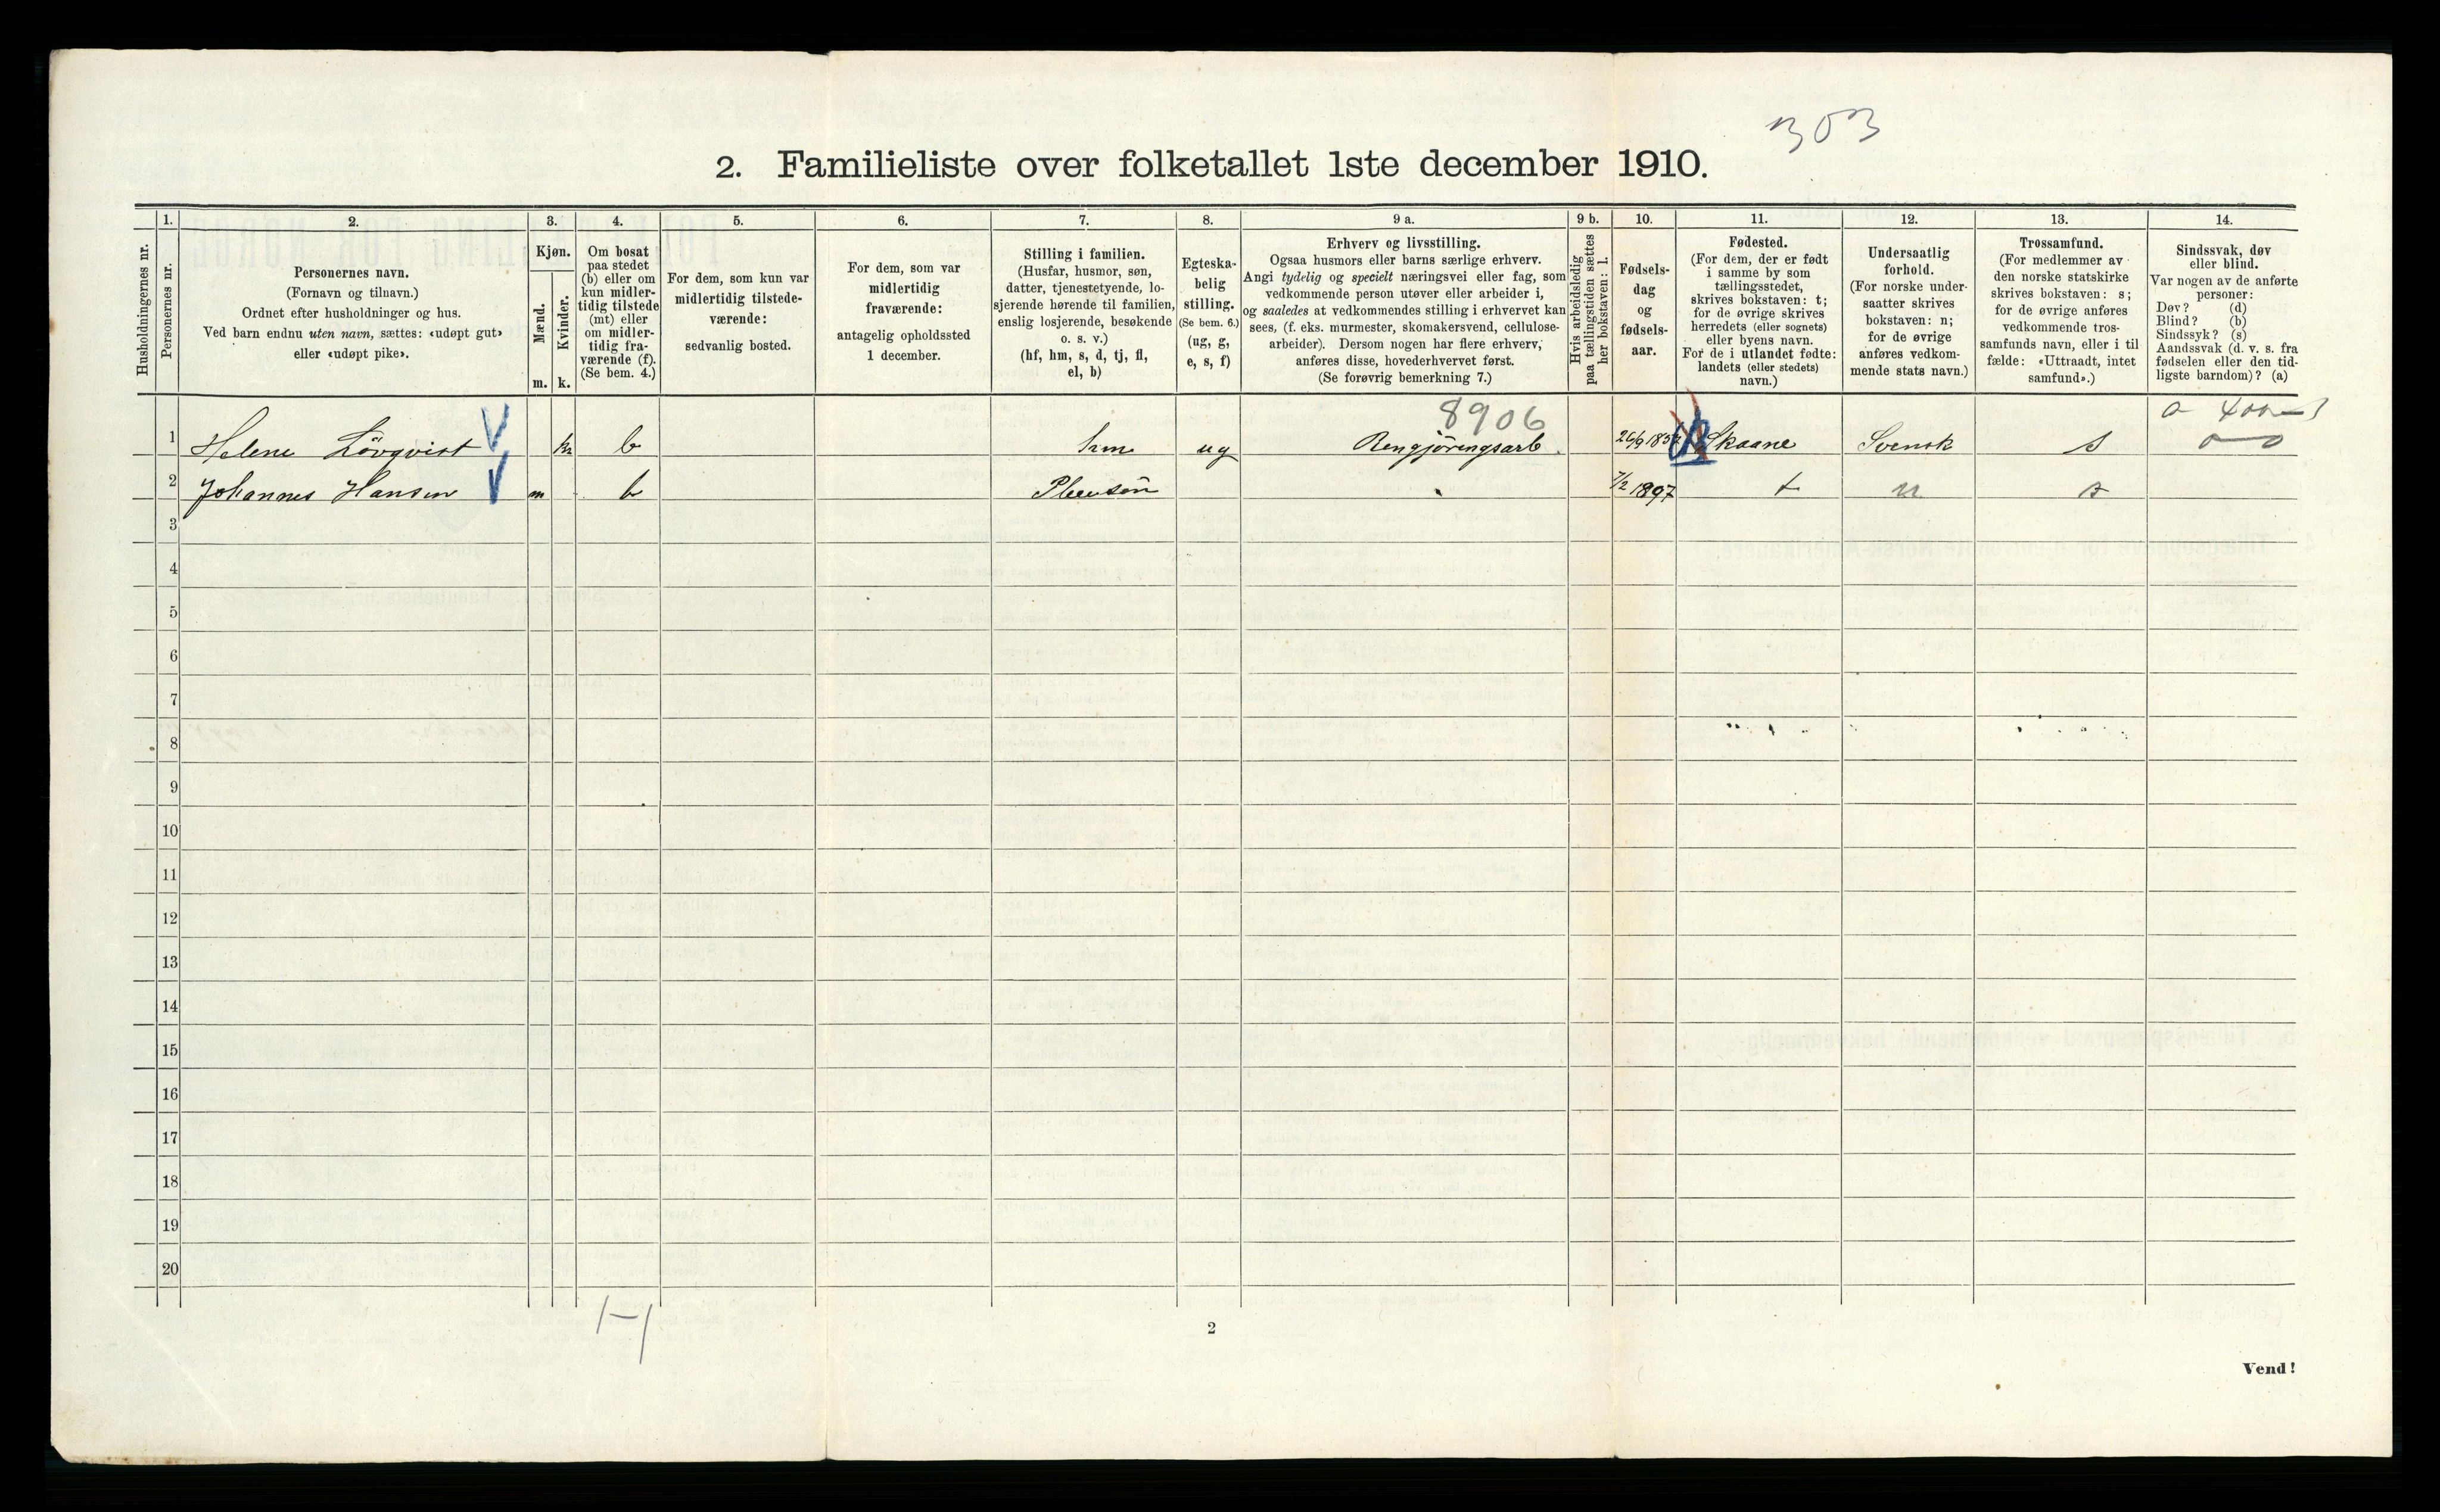 303
2. Familieliste over folketallet 1ste december 1910.
Husholdningernes nr.
1. Personernes nr.
2. Personernes navn.
(Fornavn og tilnavn.)
Ordnet efter husholdninger og hus.
Ved barn endnu uten navn, sættes: «udøpt gut»
eller «udøpt pike».
3. Kjøn.
Mænd. m.
Kvinder. k.
4. Om bosat
paa stedet
(b) eller om
kun midler-
tidig tilstede
(mt) eller
om midler-
tidig fra-
værende (f).
(Se bem. 4.)
5. For dem, som kun var
midlertidig tilstede-
værende:
sedvanlig bosted.
6. For dem, som var
midlertidig
fraværende:
antagelig opholdssted
1 december.
7. Stilling i familien.
(Husfar, husmor, søn,
datter, tjenestetyende, lo-
sjerende hørende til familien,
enslig losjerende, besøkende
o. s. v.)
(hf, hm, s, d, tj, fl,
el, b)
8. Egteska-
belig
stilling.
(Se bem. 6.)
(ug, g,
e, s, f)
9 a. Erhverv og livsstilling.
Ogsaa husmors eller barns særlige erhverv.
Angi tydelig og specielt næringsvei eller fag, som
vedkommende person utøver eller arbeider i,
og saaledes at vedkommendes stilling i erhvervet kan
sees, (f. eks. murmester, skomakersvend, cellulose-
arbeider). Dersom nogen har flere erhverv,
anføres disse, hovederhvervet først.
(Se forøvrig bemerkning 7.)
9 b. Hvis arbeidsledig
paa tællingstiden sættes
her bokstaven: l.
10. Fødsels-
dag
og
fødsels-
aar.
11. Fødested.
(For dem, der er født
i samme by som
tællingsstedet,
skrives bokstaven: t;
for de øvrige skrives
herredets (eller sognets)
eller byens navn.
For de i utlandet fødte:
landets (eller stedets)
navn.)
12. Undersaatlig
forhold.
(For norske under-
saatter skrives
bokstaven: n;
for de øvrige
anføres vedkom-
mende stats navn.)
13. Trossamfund.
(For medlemmer av
den norske statskirke
skrives bokstaven: s;
for de øvrige anføres
vedkommende tros-
samfunds navn, eller i til
fælde: «Uttraadt, intet
samfund».)
14. Sindssvak, døv
eller blind.
Var nogen av de anførte
personer:
Døv? (d)
Blind? (b)
Sindssyk? (s)
Aandssvak (d. v. s. fra
fødselen eller den tid-
ligste barndom)? (a)
8906
1 Helene Lövqvist k b hm ug Rengjöringsarb. Skaane Svensk s
2 Johannes Hansen m b 7/2 1897 t n s
3
4
5
6
7
8
9
10
11
12
13
14
15
16
17
18
19
20
1-1
2
Vend!